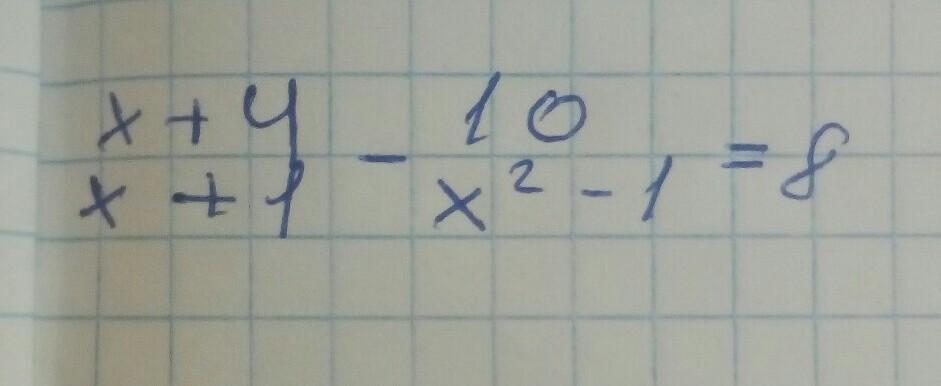 x + 4 / x + 1 - 10 / x² - 1 = 8